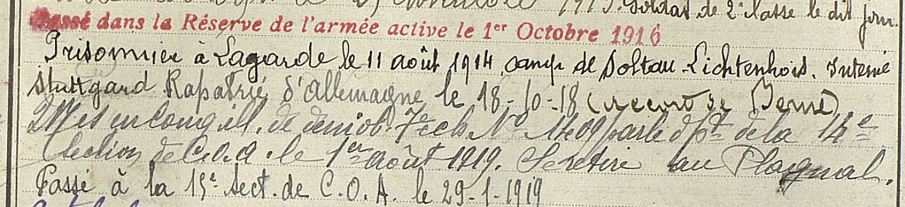 1913. Soldat de 2e classe le dit jour.
Passé dans la Réserve de l'armée active le 1er Octobre 1916
Prisonnier à Lagarde le 11 août 1914, camp de Soltau-Lichtenhorst. Interné
Stuttgard Rapatrié d'Allemagne le 18-10-18 ( de Berne)
Mis en congé ill. de démob. 7e ech. No 1409 par le dépt de la 14e
Section de C.O.A. le 1er août 1919. Se retire au
Passé à la 15e Sect. de C.O.A. le 29-1-1919